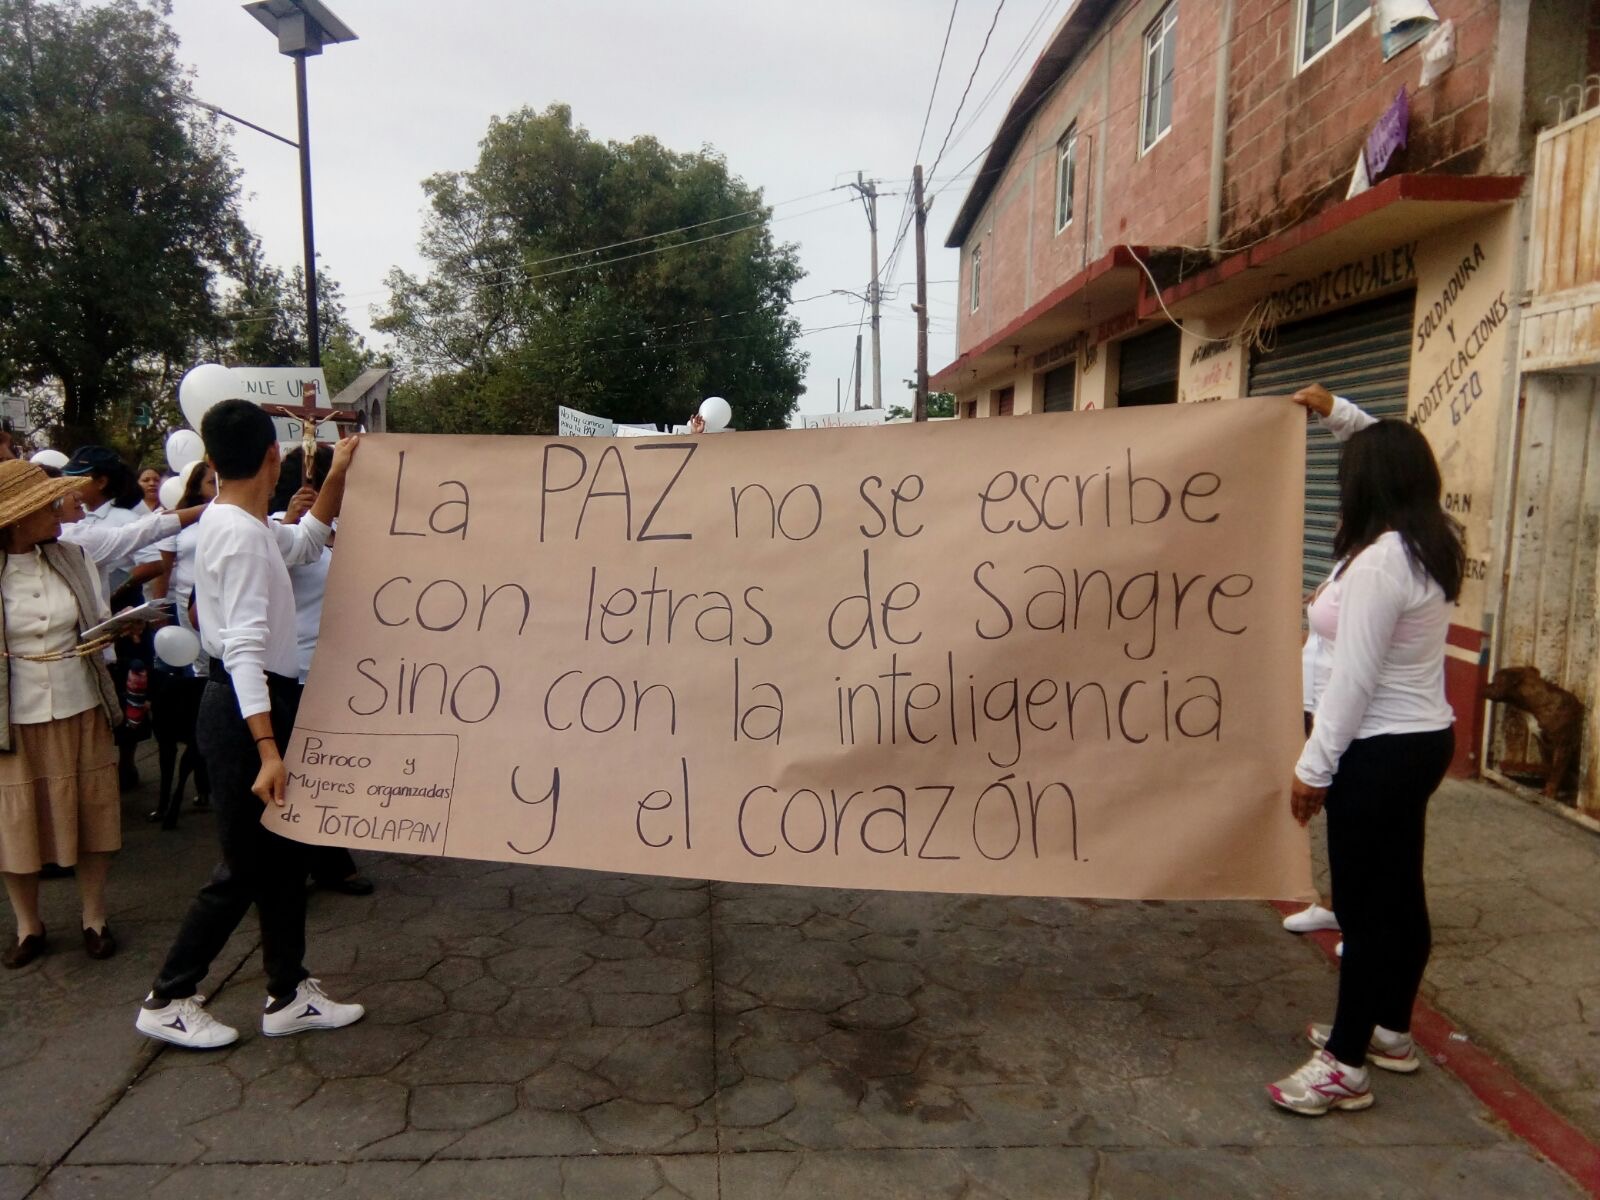 La PAZ no se escribe
con letras de sangre
sino con la inteligencia
y el corazón.
Parroco y
Mujeres organizadas
de TOTOLAPAN
No hay camino
para la PAZ
La Violencia
ENLE UNA
AUTOSERVICIO-ALEX
SOLDADURA
Y
MODIFICACIONES
GIO